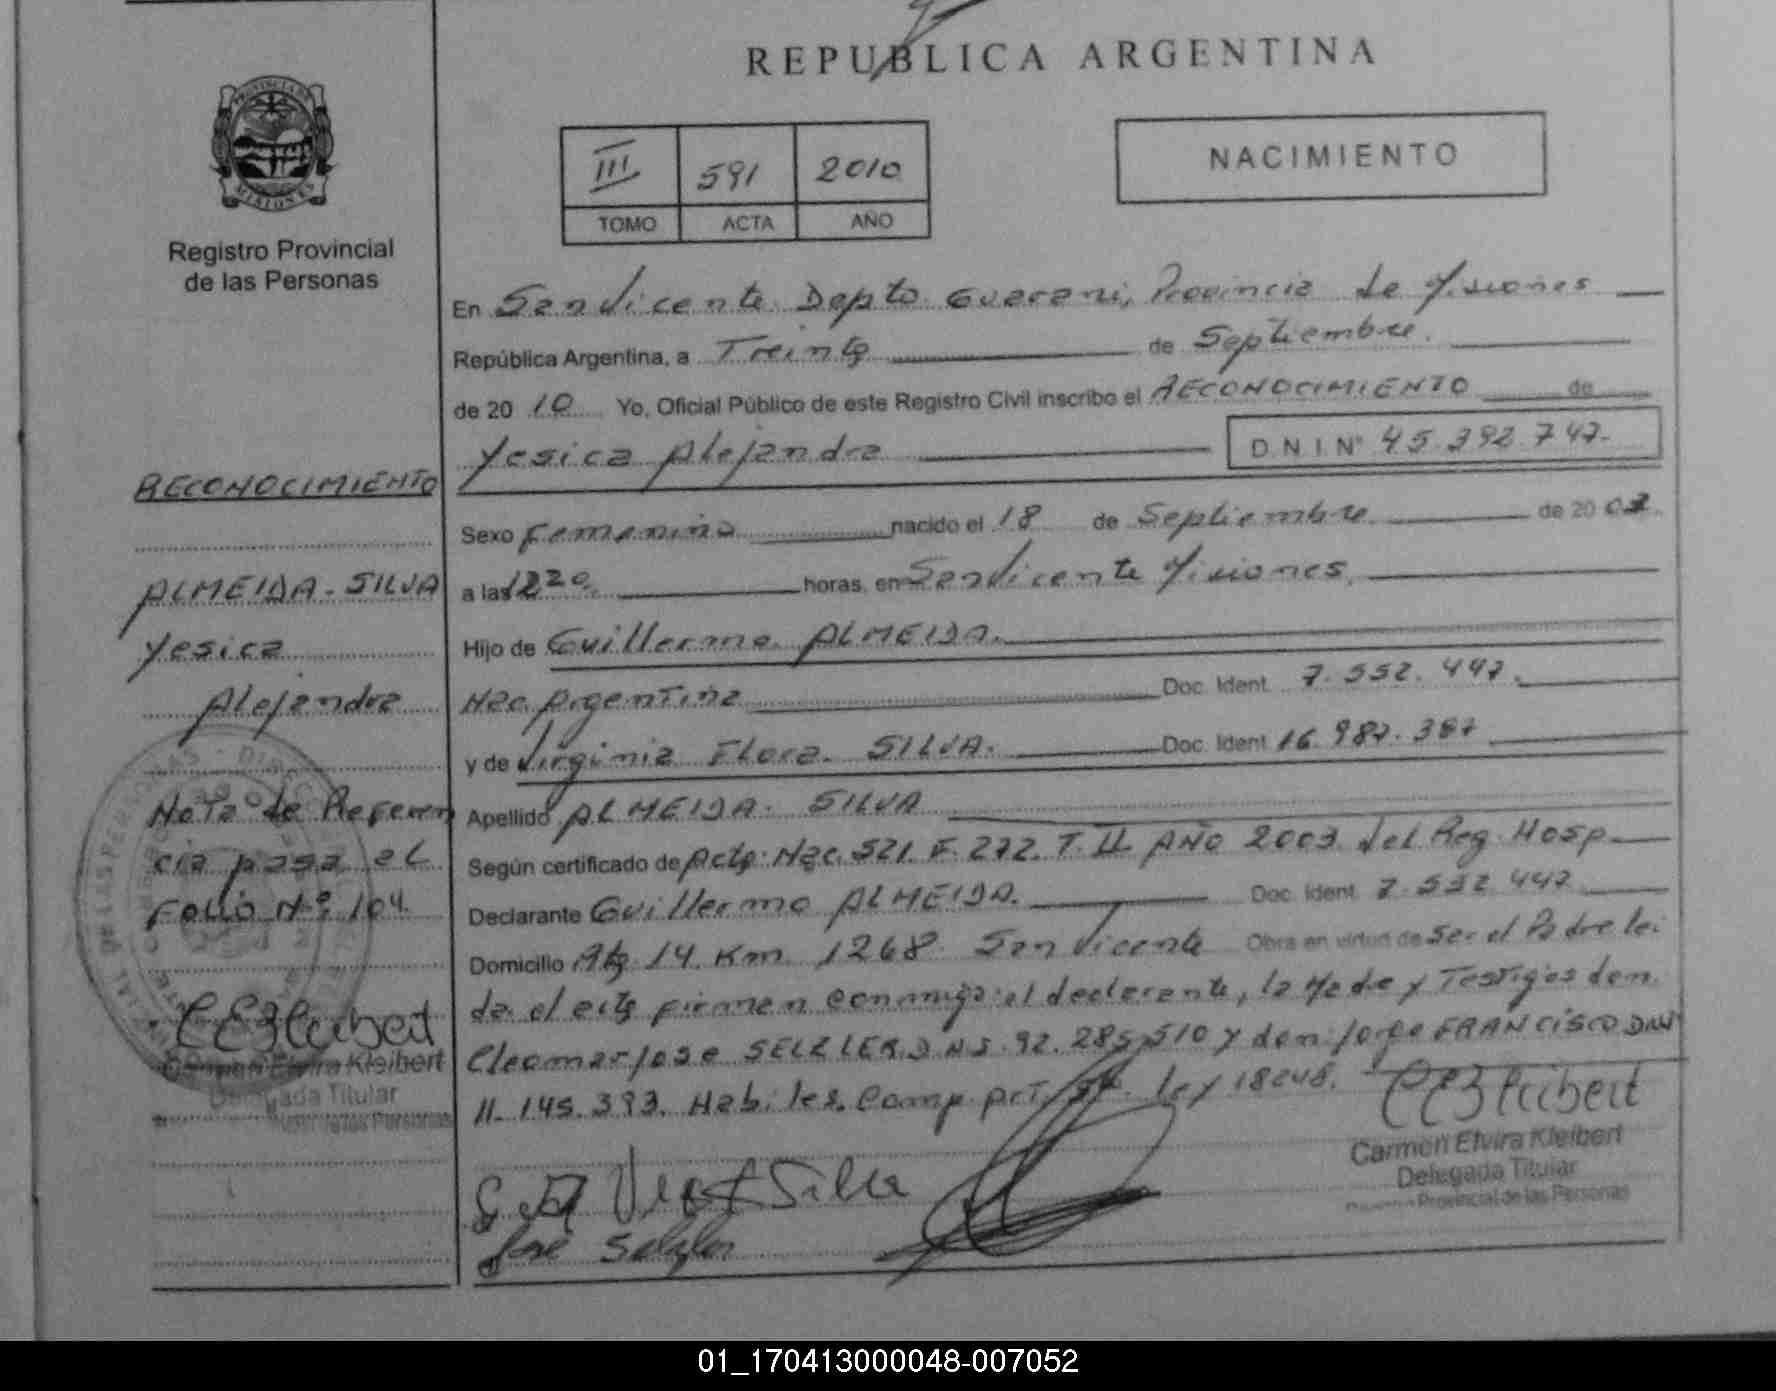 REPUBLICA ARGENTINA
PROVINCIA DE
MISIONES
Registro Provincial
de las Personas
III 591 2010
TOMO ACTA AÑO
NACIMIENTO
En San Vicente Depto Guarani, Provincia de Misiones
República Argentina, a Treinta de Septiembre.
de 20 10 Yo, Oficial Público de este Registro Civil inscribo el RECONOCIMIENTO de
Yesica Alejandra D.N.I. Nº 45.392.747.
Sexo Femenino nacido el 18 de Septiembre de 20 03
a las 1220 horas, en San Vicente Misiones.
Hijo de Guillermo ALMEIDA.
Nac. Argentina Doc. Ident. 7.552.447.
y de Virginia Flora SILVA. Doc. Ident 16.987.387
Apellido ALMEIDA - SILVA
Según certificado de Acta Nac. 521. F. 272. T. II AÑO 2003 del Reg. Hosp
Declarante Guillermo ALMEIDA. Doc. Ident. 7.552.447
Domicilio Rta 14 Km 1268 San Vicente Obra en virtud de Ser el Padre lei
da el acta firman conmigo el declarante, la Madre y Testigos don
Cleomar Jose D.N.I. 92.285.510 y don Jorge FRANCISCO
11.145.393. Habiles Comp. Ley 18248.
RECONOCIMIENTO
ALMEIDA - SILVA
Yesica
Alejandra
Nota de Referen
cia pasa al
Folio Nº 104.
Carmen Elvira Kleibert
Delegada Titular
de las Personas
Silva
Jose
Carmen Elvira Kleibert
Delegada Titular
Provincial de las Personas
01_170413000048-007052